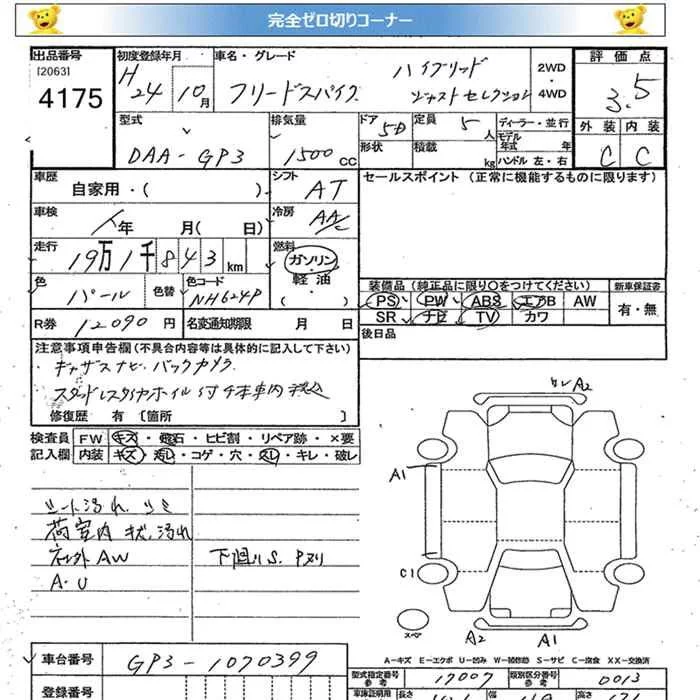 完全ゼロ切りコーナー
出品番号 初度登録年月 車名・グレード 評価点
[2063] H 24年 10月 フリードスパイク ハイブリッド 2WD・4WD 3.5
4175 ジャストセレクション
型式 排気量 ドア 5D 定員 5人 ディーラー・並行 外装 内装
DAA-GP3 1500cc 形状 積載 kg モデル年式 年 C C
ハンドル 左・右
車歴 自家用・( ) シフト AT セールスポイント (正常に機能するものに限ります)
車検 年 月( 日) 冷房 AAC
走行 19万1千843km 燃料 ガソリン・軽油・( )
色 パール 色替 色コード NH624P 装備品 (純正品に限り○をつけてください) 新車保証書
PS PW ABS エアB AW 有・無
R券 12090円 名変通知期限 月 日 SR ナビ TV カワ
後日品
注意事項申告欄 (不具合内容等は具体的に記入して下さい)
ギャザズナビ バックカメラ
スタッドレスタイヤホイル付 4本車内 税込
修復歴 有 [箇所 ]
検査員 FW キズ・飛石・ヒビ割・リペア跡・×要
記入欄 内装 キズ・汚レ・コゲ・穴・スレ・キレ・破レ
シート汚れ、シミ
荷室内 キズ、汚れ
社外AW 下回りS、Pヌリ
A・U
A2
A1
C1
スペア
A2 A1
A-キズ E-エクボ U-凹み W-補修跡 S-サビ C-腐食 XX-交換済
車台番号 GP3-1070399 型式指定番号 参考 17007 類別区分番号 参考 0013
登録番号 車庫証明用 長さ 幅 高さ